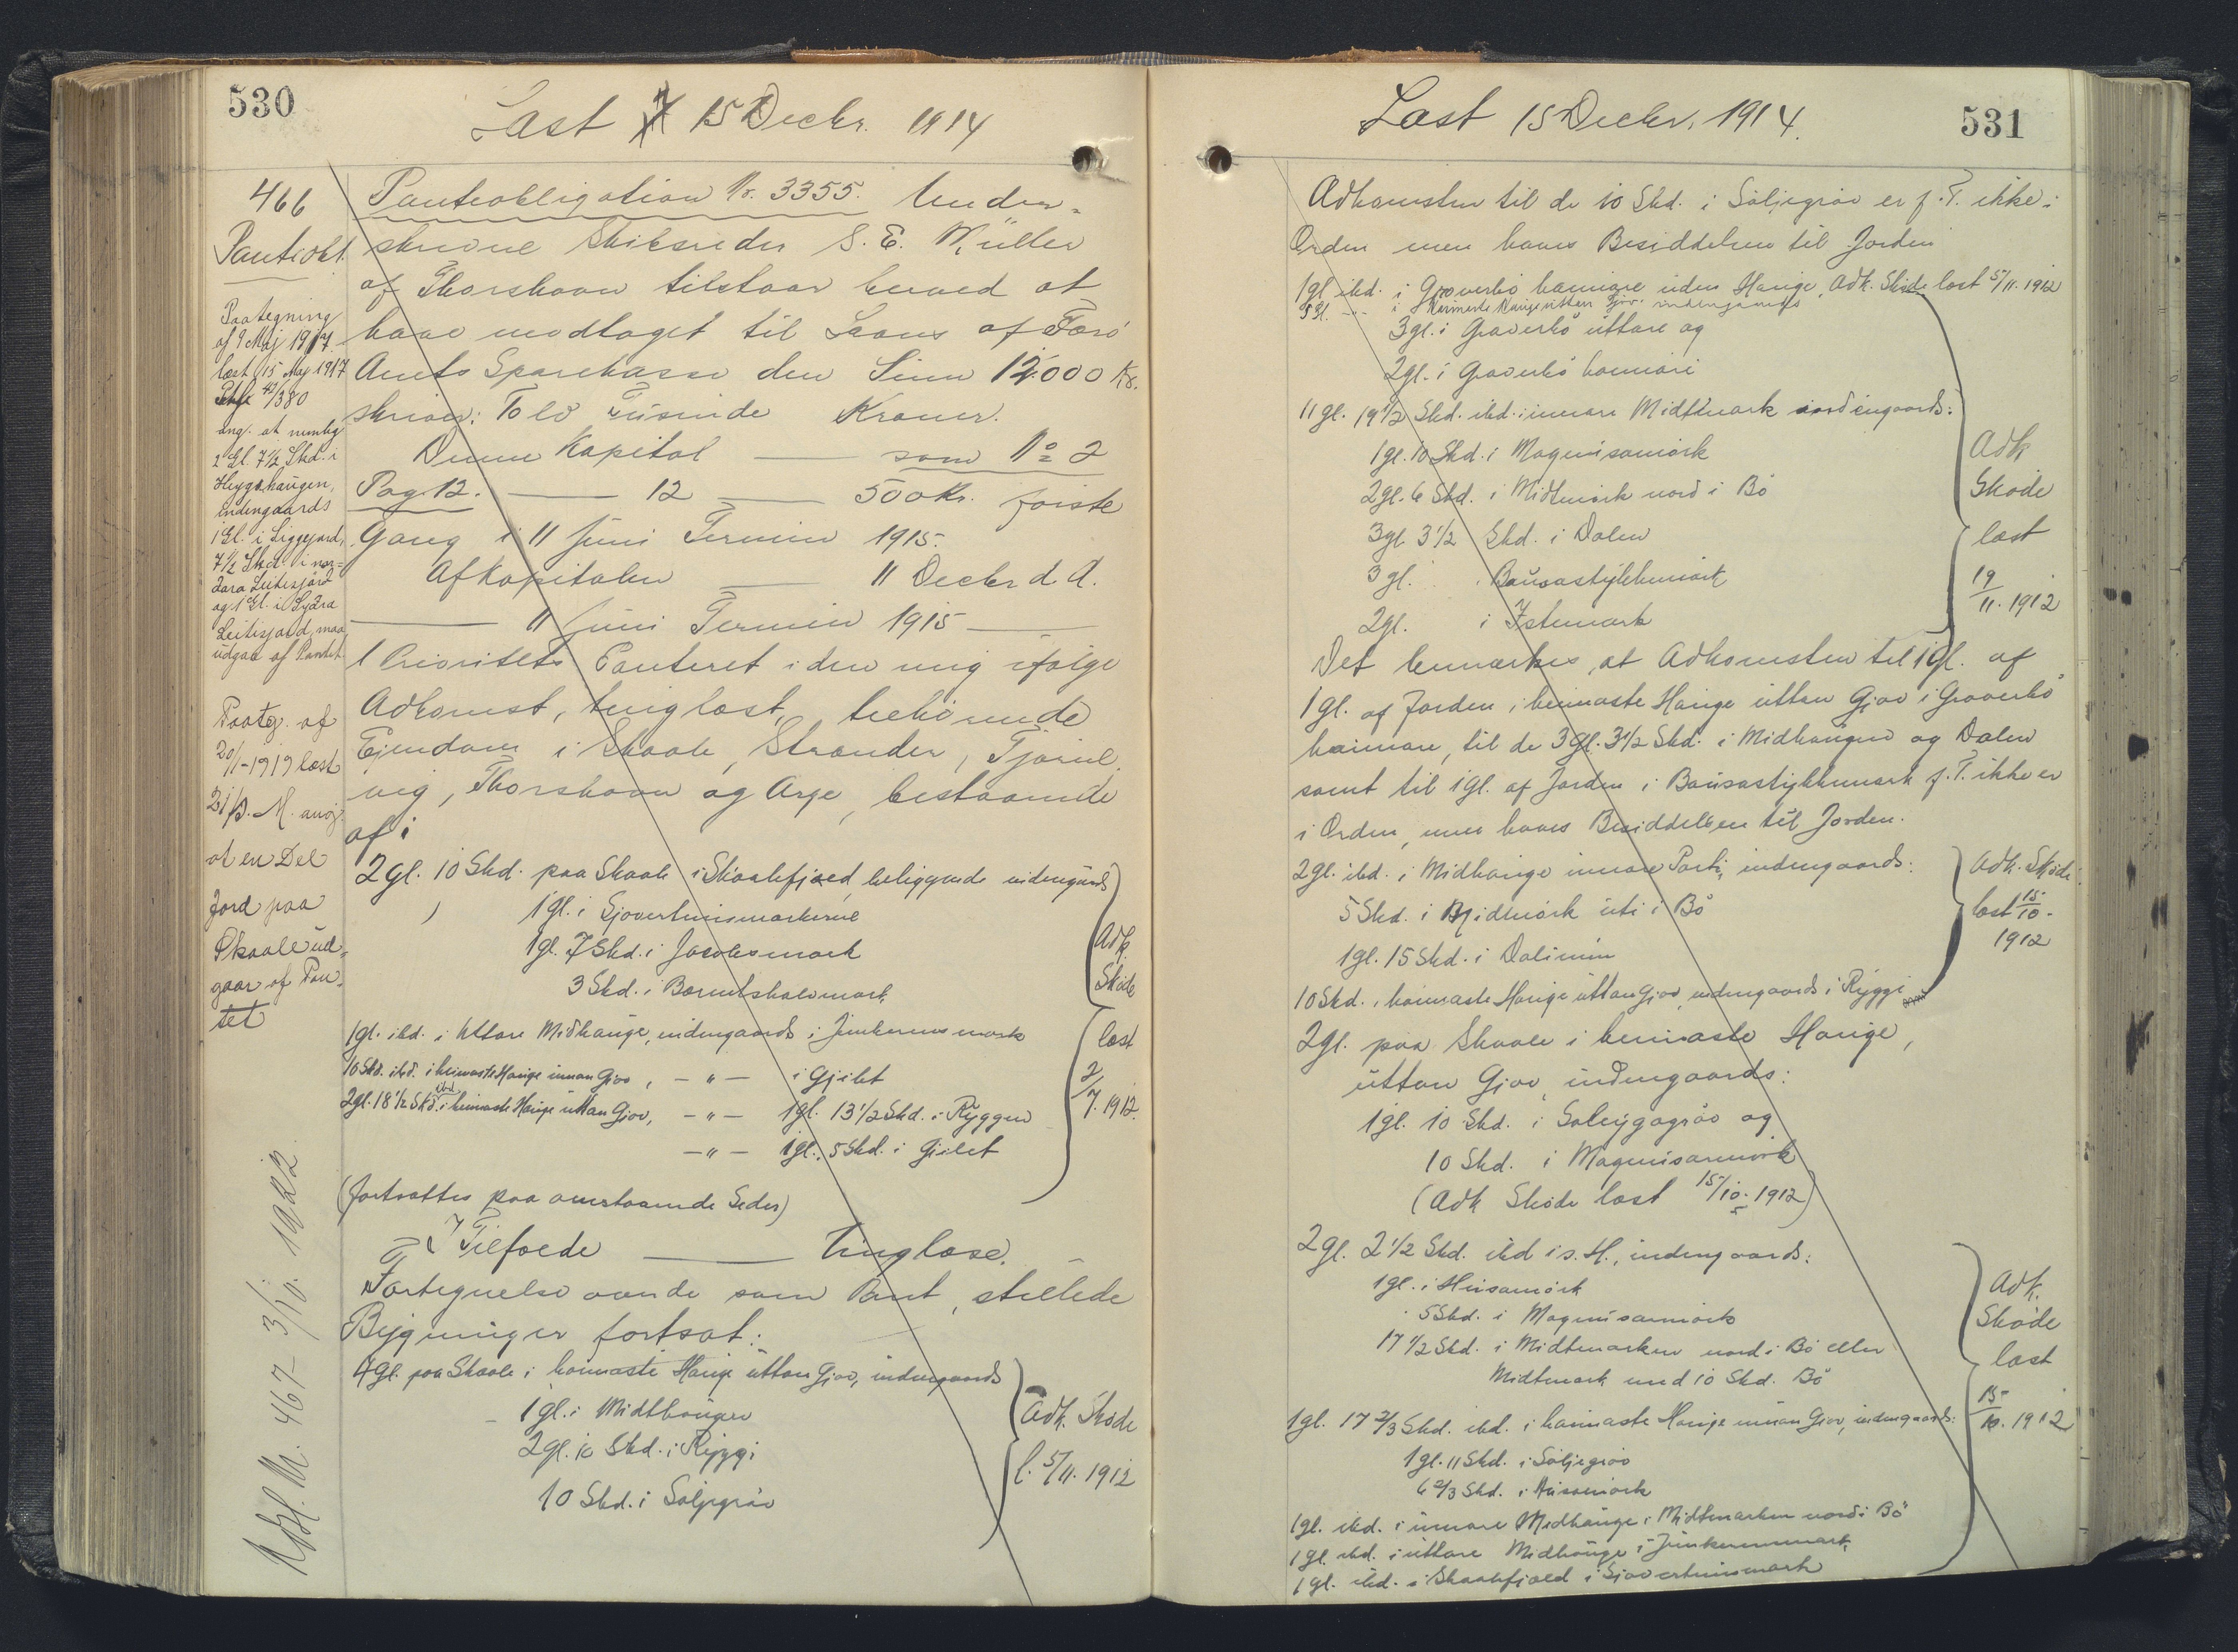 530
Læst 15 Decbr. 1914
466
Panteobl.
Paategning
af 9 Maj 1917
læst 15 Maj 1917
42/380
ang. at nemlig
2 Gl. 7½ Skd. i
Heygshaugen,
indengaards
1 Gl. i Liggjard,
7½ Skd. i nor=
dara Leitisjord
og 1 Gl. i Sydra
Leitisjord maa
udgaa af Pantet
Paateg. af
20/1-1919 læst
21/s. M. ang.
at en Del
Jord paa
Skaale ud=
gaar af Pan=
tet
Udsl. Nr. 467- 3/10. 1922
Panteobligation Nr. 3355. Under=
skrevne Skibsreder S. E. Müller
af Thorshavn tilstaar herved at
have modtaget til Laans af Færø
Amts Sparekasse den Sum 12.000 Kr.
skriver: Tolv Tusinde Kroner.
Denne Kapital — som No 2
Pag 12. — 12 — 500 Kr. første
Gang i 11 Juni Termin 1915.
Af Kapitalen — 11 Decbr d. A.
— 11 Juni Termin 1915 —
1 Prioritets Panteret i den mig ifølge
Adkomst, tinglæst, tilhørende
Ejendom i Skaale, Strænder, Tjørne
vig, Thorshavn og Arge, bestaaende
af i
2 gl. 10 Skd. paa Skaale i Skaalefjord, beliggende indengaards
1 gl. i Gjovertunsmarkerne
1 gl. 7 Skd. i Jacobsmark
3 Skd. i Barmtshalsmark
1 gl. ibd. i uttare Midhauge, indengaards i Junkerens mark
10 Skd. ibd. i heimaste Hauge innan Gjov, - " - i Gjilet
2 gl. 18½ Skd. ibd. i heimaste Hauge uttan Gjov, - " - 1 gl. 13½ Skd. i Ryggen
- " - 1 gl. 5 Skd. i Gjilet
Adk.
Skøde
læst
2/7. 1912.
(fortsættes paa omstaaende Sider)
Tilfælde — tinglæse.
Fortegnelse over de som Pant stillede
Bygninger fortsat:
4 gl. paa Skaale i heimaste Hauge uttan Gjov, indengaards
1 gl. i Midthaugen
2 gl. 10 Skd. i Ryggi
10 Skd. i Søljegrøv
Adk. Skøde
l. 5/11. 1912
Læst 15 Decbr. 1914.
531
Adkomsten til de 10 Skd. i Søljegrøv er f. T. ikke i
Orden men haves Besiddelsen til Jorden
1 gl. ibd. i Graverbø heimare uden Hauge, Adk. Skøde læst 5/11. 1912
5 Gl. - - i Heimaste Hauge uttan Gjov. indengaards
3 gl. i Graverbø uttare og
2 gl. i Graverbø heimari
11 gl. 19½ Skd. ibd. i innare Midtmark indengaards:
1 gl. 10 Skd. i Magnusamørk
2 gl. 6 Skd. i Midtmørk nord i Bø
3 gl. 3½ Skd. i Dalen
3 gl. i Bausastykkemørk
2 gl. i Istemark
Adk
Skøde
læst
19/11. 1912
Det bemærkes, at Adkomsten til 1 gl. af
1 gl. af Jorden i heimaste Hauge uttan Gjov i Graverbø
heimare, til de 3 gl. 3½ Skd. i Midhaugen og Dalen
samt til 1 gl. af Jorden i Bausastykkemark f. T. ikke er
i Orden, men haves Besiddelsen til Jorden.
2 gl. ibd. i Midhauge innare Part, indengaards:
5 Skd. i Midmørk uti i Bø
1 gl. 15 Skd. i Dalimun
10 Skd. i heimaste Hauge uttan Gjov, indengaards i Ryggi
Adk. Skøde
læst 15/10-
1912
2 gl. paa Skaale i heimaste Hauge,
uttan Gjov, indengaards:
1 gl. 10 Skd. i Soleygagrøv og
10 Skd. i Magnusarmørk
(Adk Skøde læst 15/10. 1912)
2 gl. 2½ Skd. ibd i s. H., indengaards:
1 gl. i Husamørk
5 Skd. i Magnusarmørk
17½ Skd. i Midtmarken nord i Bø eller
Midtmark med 10 Skd. Bø
1 gl. 17⅔ Skd. ibd. i heimaste Hauge innan Gjov, indengaards:
1 gl. 11 Skd. i Søljegrøv
6⅔ Skd. i Husamørk
1 gl. ibd. i innare Midhauge i Midtmarken nord i Bø
1 gl. ibd. i uttare Midhauge i Junkerenmark
1 gl. ibd. i Skaalefjæld i Gjovertunsmark
Adk.
Skøde
læst
15/10. 1912